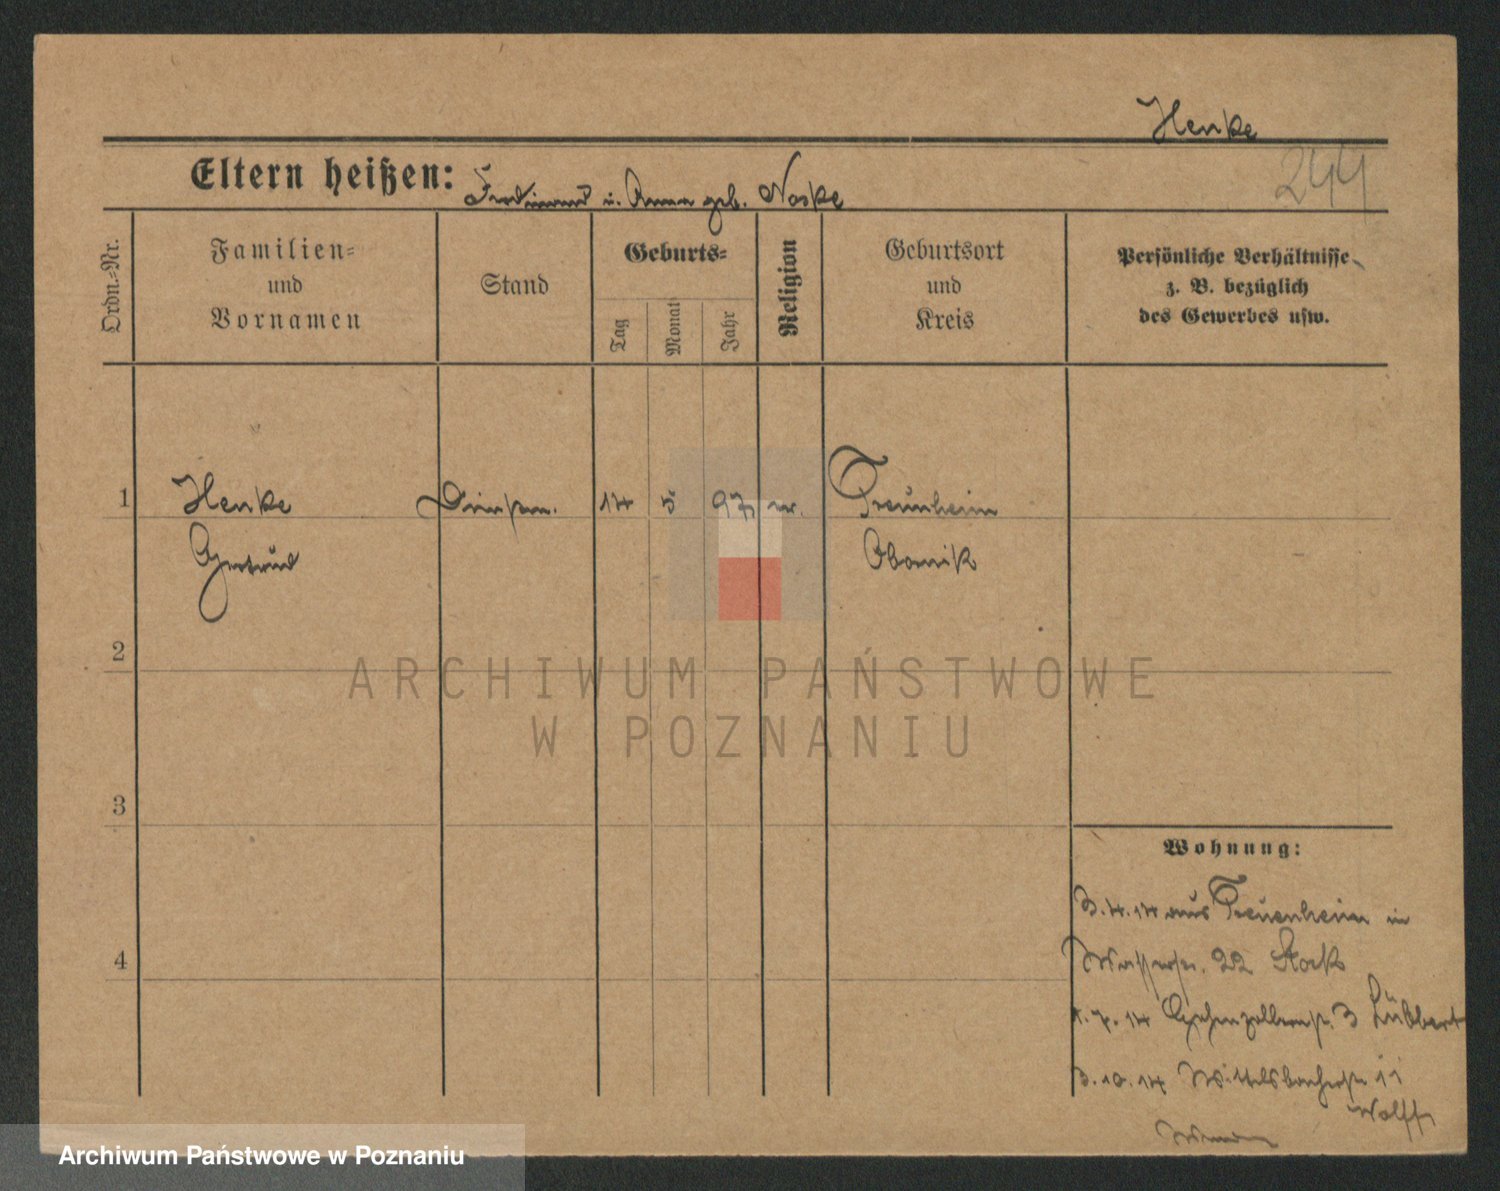 Henke
244
Eltern heißen: Ferdinand u. Anna geb. Noske
Ordn.=Nr.
Familien=
und
Vornamen
Stand
Geburts=
Tag
Monat
Jahr
Religion
Geburtsort
und
Kreis
Persönliche Verhältnisse
z. B. bezüglich
des Gewerbes usw.
1
Henke
Gertrud
14
5
97
Treuenheim
Obornik
2
3
4
Wohnung:
3.4.14 aus Treuenheim in
22
1.7.14 Hohenzollernstr. 3 Lübbert
3.10.14 Wittelsbacherstr. 11
Wolff
ARCHIWUM PAŃSTWOWE
W POZNANIU
Archiwum Państwowe w Poznaniu